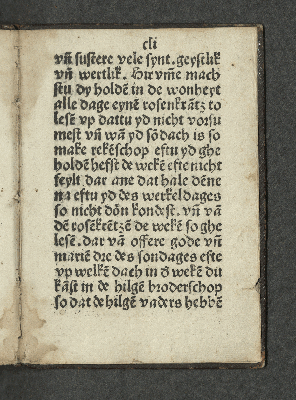 cli
vñ sustere vele synt. geystlik
vñ wertlik. Hir vm̄e mach
stu dy holdē in de wonheyt
alle dage eynē rosenkrātz to
lesē vp dattu yd nicht vorsu
mest vñ wā yd sōdach is so
make rekēschop eftu yd ghe
holdē hefst de wekē efte nicht
feylt dar ane dat hale dēne
na eftu yd des werkeldages
so nicht dōn kondest. vñ vā
dē rosēkrētzē de wekē so ghe
lesē. dar vā offere gode vñ
mariē dre des sondages efte
vp welkē dach in d̕ wekē du
kāst in de hilgē broderschop
so dat de hilgē vaders hebbē